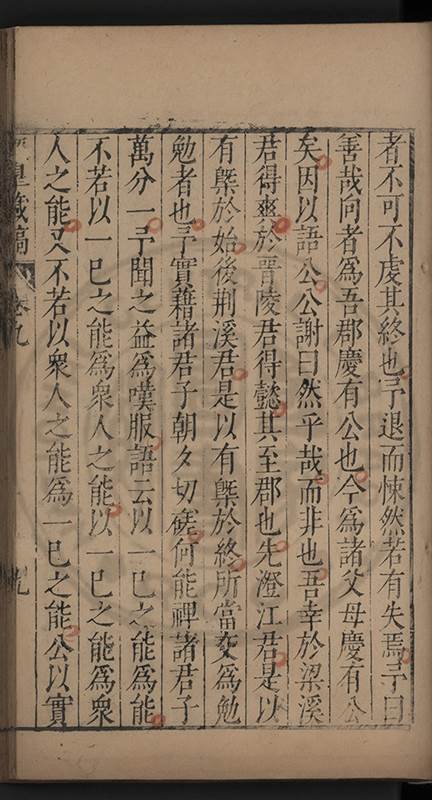 者不可不虔其終也予退而悚然若有失焉予曰
善哉向者為吾郡慶有公也今為諸父母慶有公
矣因以語公公謝曰然乎哉而非也吾幸於梁溪
君得爽於晋陵君得懿其至郡也先澄江君是以
有槩於始後荆溪君是以有槩於終所當交為勉
勉者也予實藉諸君子朝夕切磋何能禆諸君子
萬分一予聞之益為嘆服語云以一已之能為能
不若以一已之能為衆人之能以一已之能為衆
人之能又不若以衆人之能為一已之能公以實
皇藏稿 卷九 九